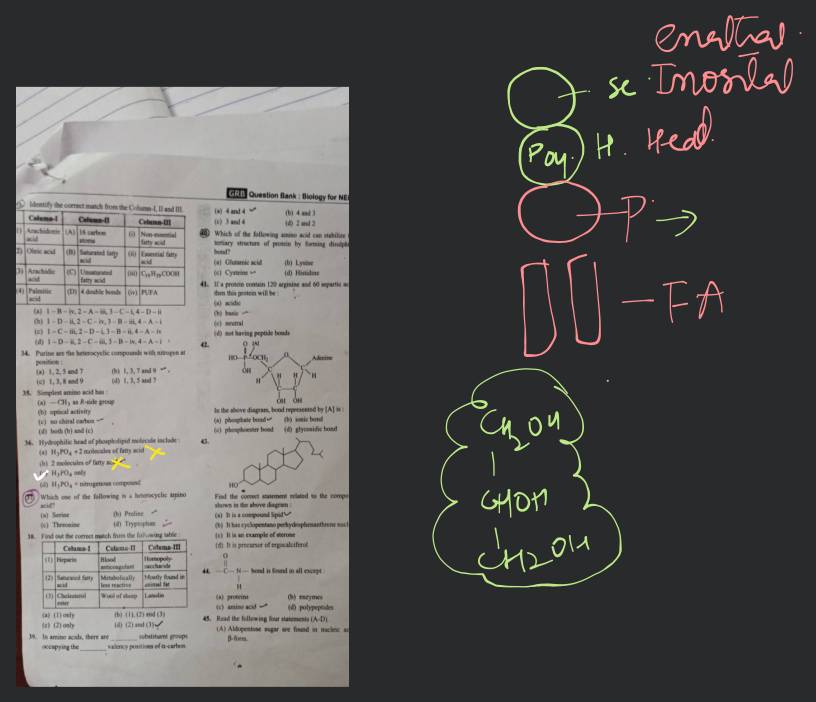 GRB Question Bank : Biology for NE
Identify the correct match from the Column-I, II and III.
Column-I Column-II Column-III
1) Arachidonic acid (A) 16 carbon atoms (i) Non-essential fatty acid
2) Oleic acid (B) Saturated fatty acid (ii) Essential fatty acid
3) Arachidic acid (C) Unsaturated fatty acid (iii) C₁₉H₃₉COOH
(4) Palmitic acid (D) 4 double bonds (iv) PUFA
(a) 1 – B – iv, 2 – A – iii, 3 – C – i, 4 – D – ii
(b) 1 – D – ii, 2 – C – iv, 3 – B – iii, 4 – A – i
(c) 1 – C – iii, 2 – D – i, 3 – B – ii, 4 – A – iv
(d) 1 – D – ii, 2 – C – iii, 3 – B – iv, 4 – A – i
34. Purine are the heterocyclic compounds with nitrogen at
position :
(a) 1, 2, 5 and 7 (b) 1, 3, 7 and 9
(c) 1, 3, 8 and 9 (d) 1, 3, 5 and 7
35. Simplest amino acid has :
(a) —CH₃ as R-side group
(b) optical activity
(c) no chiral carbon
(d) both (b) and (c)
36. Hydrophilic head of phospholipid molecule include :
(a) H₃PO₄ + 2 molecules of fatty acid
(b) 2 molecules of fatty
H₃PO₄ only
(d) H₃PO₄ + nitrogenous compound
37 Which one of the following is a heterocyclic amino
acid?
(a) Serine (b) Proline
(c) Threonine (d) Tryptophan
38. Find out the correct match from the following table :
Column-I Column-II Column-III
(1) Heparin Blood anticoagulant Homopoly-saccharide
(2) Saturated fatty acid Metabolically less reactive Mostly found in animal fat
(3) Cholesterol ester Wool of sheep Lanolin
(a) (1) only (b) (1), (2) and (3)
(c) (2) only (d) (2) and (3)
39. In amino acids, there are ______ substituent groups
occupying the ______ valency positions of α-carbon.
(a) 4 and 4 (b) 4 and 3
(c) 3 and 4 (d) 2 and 2
40. Which of the following amino acid can stabilize
tertiary structure of protein by forming disulph
bond?
(a) Glutamic acid (b) Lysine
(c) Cysteine (d) Histidine
41. If a protein contain 120 arginine and 60 aspartic ac
then this protein will be :
(a) acidic
(b) basic
(c) neutral
(d) not having peptide bonds
42.
O [A]
HO—P—OCH₂ O Adenine
OH H H H H
OH OH
In the above diagram, bond represented by [A] is :
(a) phosphate bond (b) ionic bond
(c) phosphoester bond (d) glycosidic bond
43.
HO
Find the correct statement related to the compo
shown in the above diagram :
(a) It is a compound lipid
(b) It has cyclopentano perhydrophenanthrene nucl
(c) It is an example of sterone
(d) It is precursor of ergocalciferol
O
44. —C—N— bond is found in all except :
H
(a) proteins (b) enzymes
(c) amino acid (d) polypeptides
45. Read the following four statements (A-D).
(A) Aldopentose sugar are found in nucleic ac
β-form.
Inosital
Poy. H. Head
P →
FA
CH₂OH
CHOH
CH2OH